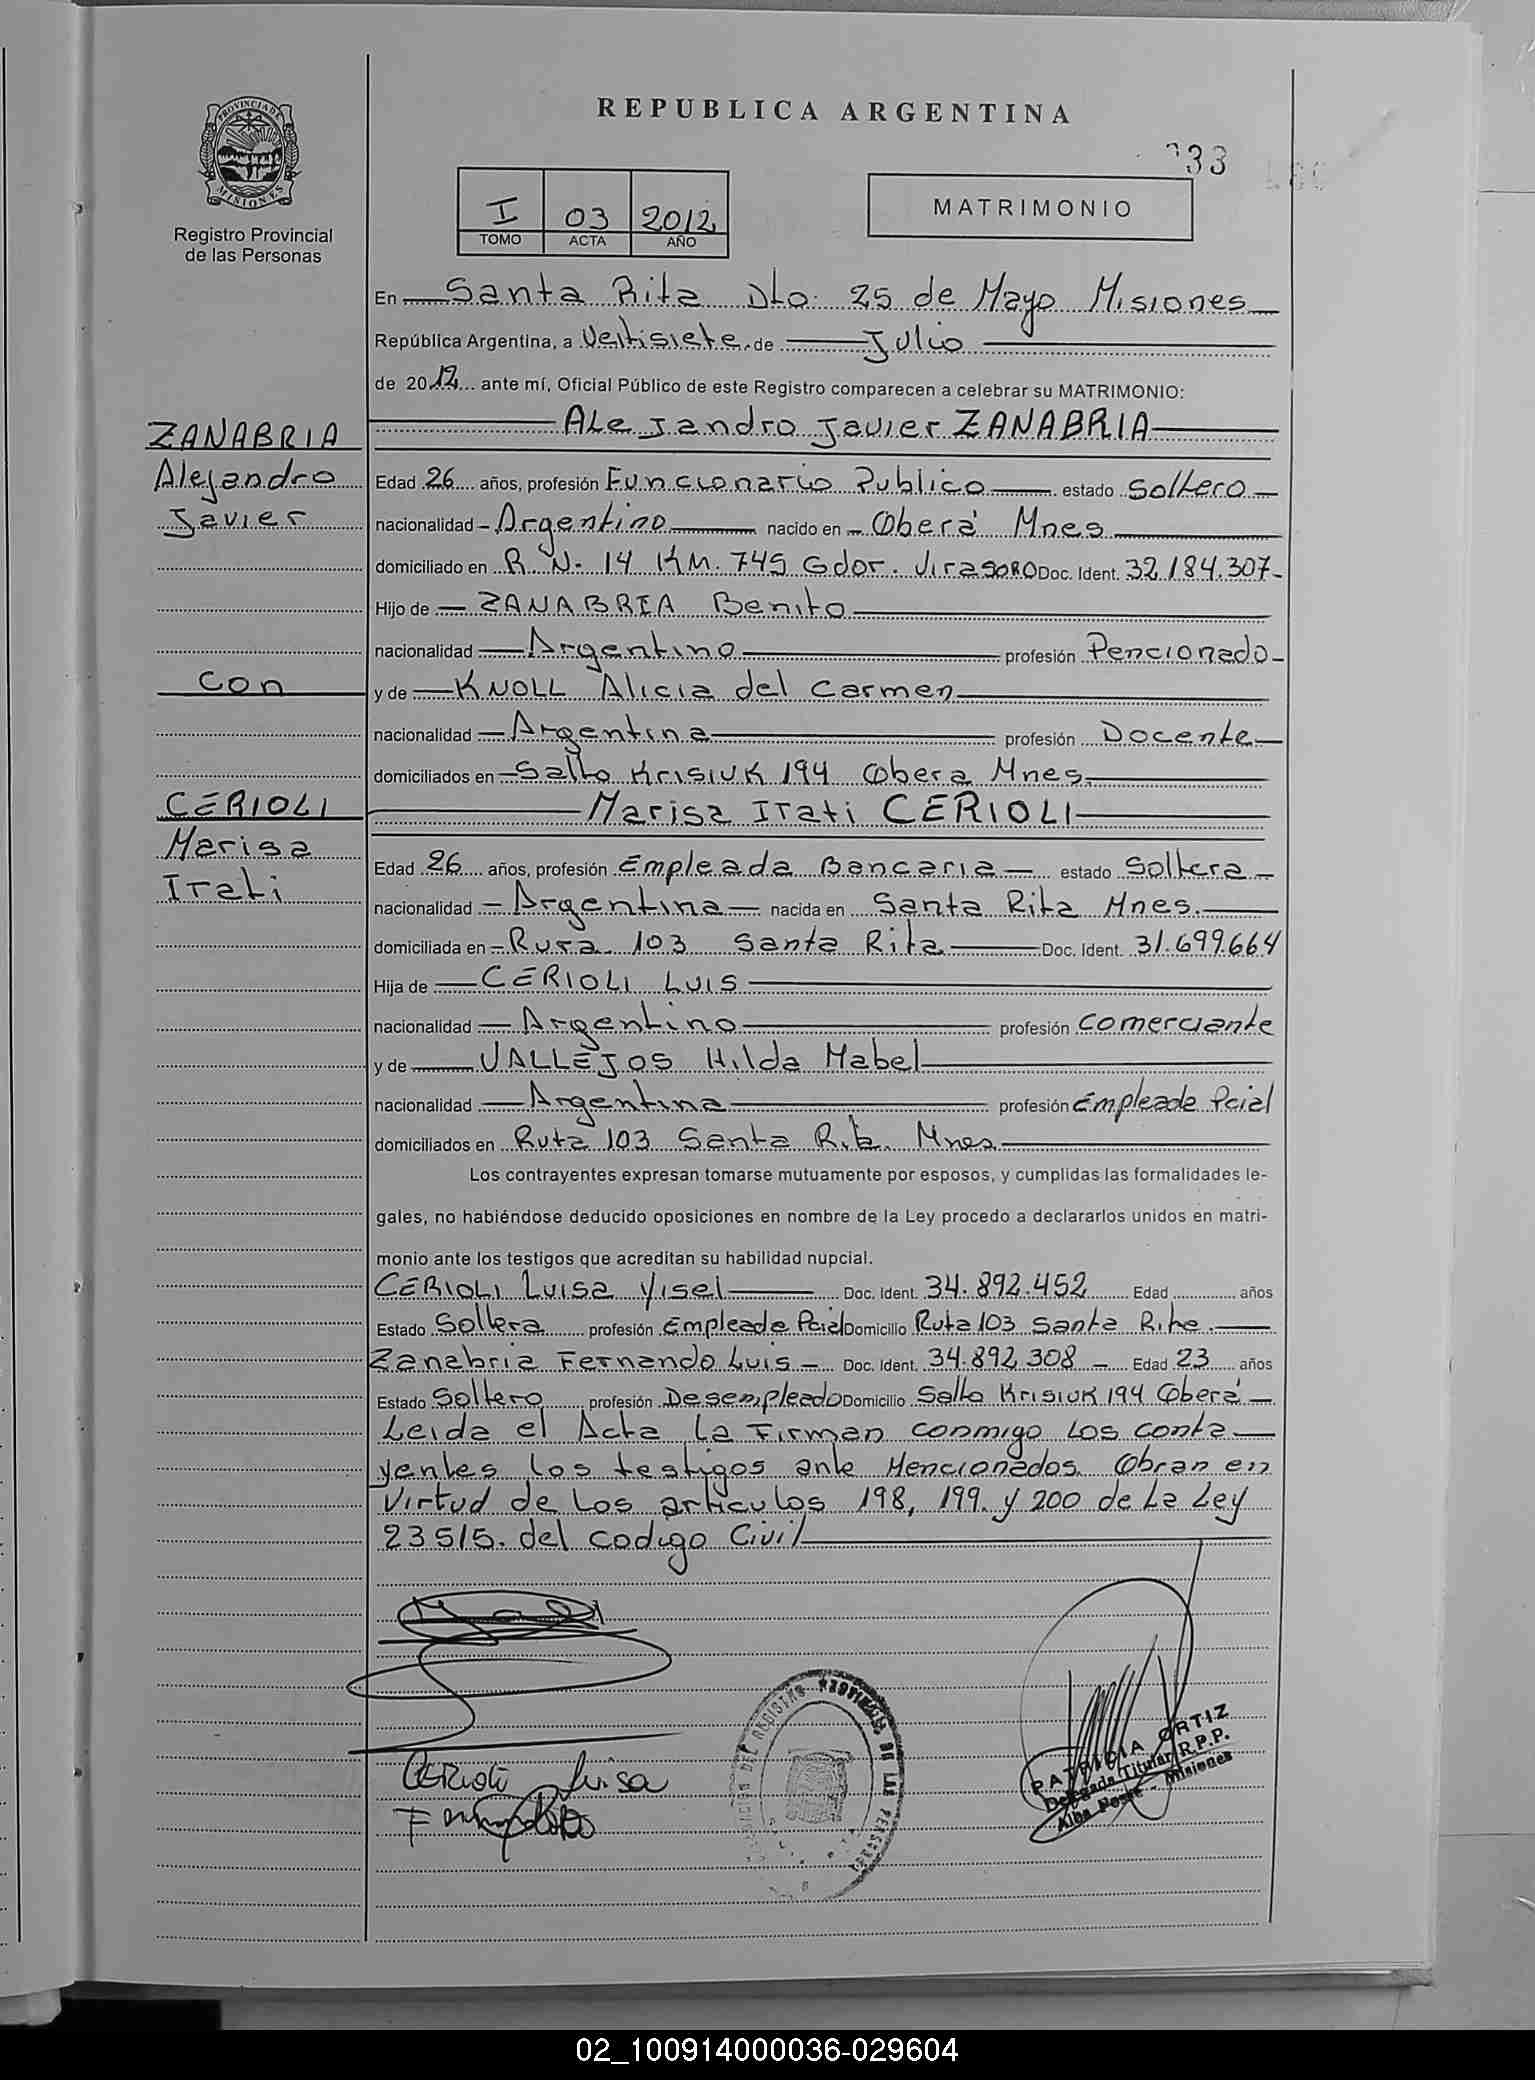 REPUBLICA ARGENTINA
33
PROVINCIA DE MISIONES
Registro Provincial
de las Personas
I 03 2012
TOMO ACTA AÑO
MATRIMONIO
En Santa Rita Dto. 25 de Mayo Misiones
República Argentina, a Veitisiete de Julio
de 2012 ante mí, Oficial Público de este Registro comparecen a celebrar su MATRIMONIO:
ZANABRIA
Alejandro
Javier
con
CERIOLI
Marisa
Irati
Alejandro Javier ZANABRIA
Edad 26 años, profesión Funcionario Publico estado Soltero
nacionalidad Argentino nacido en Oberá Mnes
domiciliado en R. N. 14 KM. 745 Gdor. Virasoro Doc. Ident. 32.184.307
Hijo de ZANABRIA Benito
nacionalidad Argentino profesión Pencionado
y de KNOLL Alicia del Carmen
nacionalidad Argentina profesión Docente
domiciliados en Salto Krisiuk 194 Obera Mnes
Marisa Irati CERIOLI
Edad 26 años, profesión Empleada Bancaria estado Soltera
nacionalidad Argentina nacida en Santa Rita Mnes.
domiciliada en Ruta 103 Santa Rita Doc. Ident. 31.699.664
Hija de CERIOLI LUIS
nacionalidad Argentino profesión Comerciante
y de VALLEJOS Hilda Mabel
nacionalidad Argentina profesión Empleada Pcial
domiciliados en Ruta 103 Santa Rita Mnes
Los contrayentes expresan tomarse mutuamente por esposos, y cumplidas las formalidades le-
gales, no habiéndose deducido oposiciones en nombre de la Ley procedo a declararlos unidos en matri-
monio ante los testigos que acreditan su habilidad nupcial.
CERIOLI Luisa Yisel Doc. Ident. 34.892.452 Edad años
Estado Soltera profesión Empleada Pcial Domicilio Ruta 103 Santa Rita.
Zanabria Fernando Luis Doc. Ident. 34.892.308 Edad 23 años
Estado Soltero profesión Desempleado Domicilio Salto Krisiuk 194 Oberá
Leida el Acta la Firman conmigo los conta
yentes los testigos ante Mencionados. Obran en
Virtud de los articulos 198, 199. y 200 de la Ley
23515. del codigo Civil
CERIOLI Luisa
PATRICIA ORTIZ
Delegada Titular R.P.P.
Alba Posse - Misiones
02_100914000036-029604